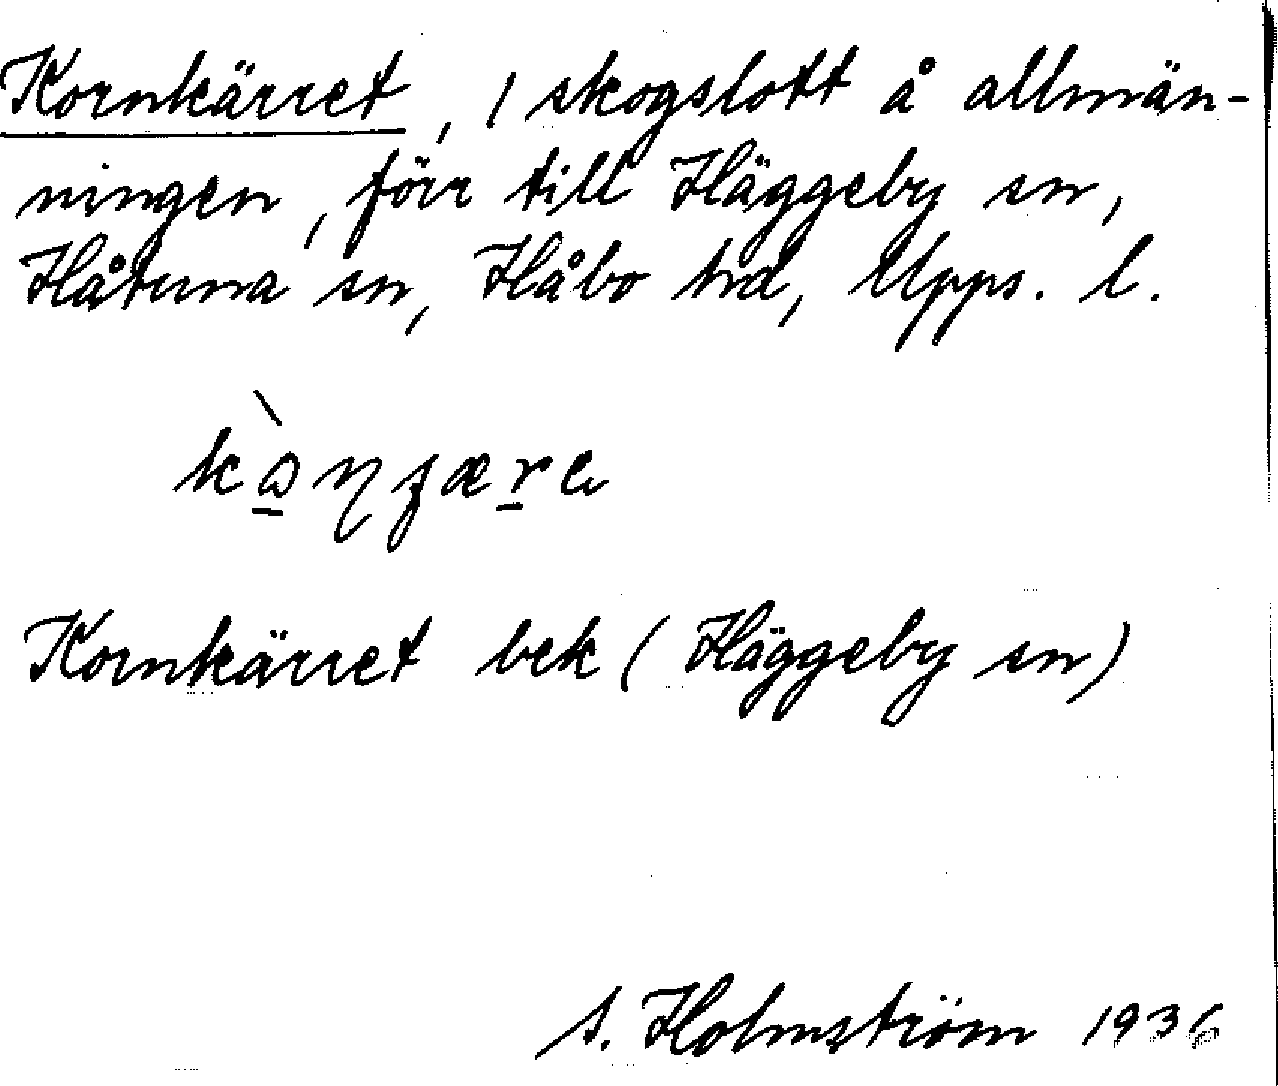 Kornkärret, 1 skogslott å allmän-
ningen, förr till Häggeby sn,
Håtuna sn, Håbo hd, Upps. l.
Kornkärret bek (Häggeby sn)
S. Holmström 1936